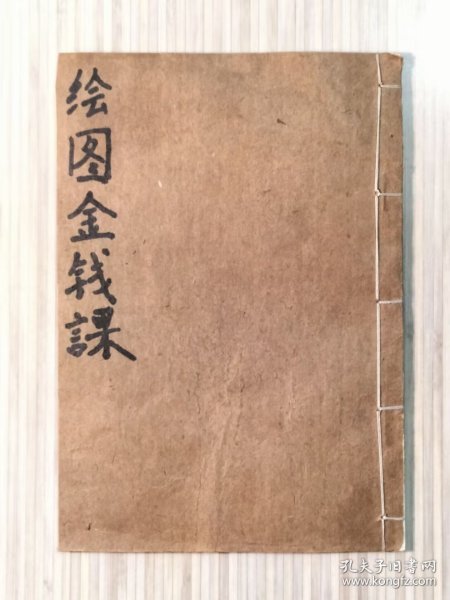 绘图金钱課
孔夫子旧书网
www.kongfz.com